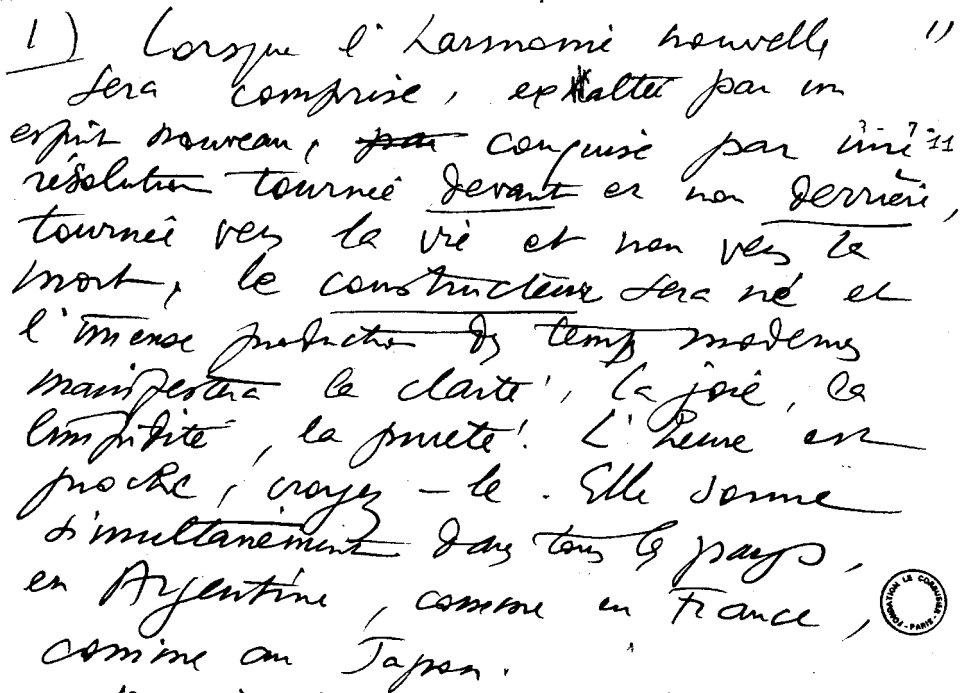 1) Lorsque l'harmonie nouvelle "
sera comprise, exaltée par un
esprit nouveau, conquise par une
résolution tournée devant et non derrière,
tournée vers la vie et non vers la
mort, le constructeur sera né et
l'immense production des temps modernes
manifestera la clarté, la joie, la
limpidité, la pureté. L'heure est
proche, croyez-le. Elle sonne
simultanément dans tous les pays,
en Argentine, comme en France,
comme au Japon.
FONDATION LE CORBUSIER - PARIS